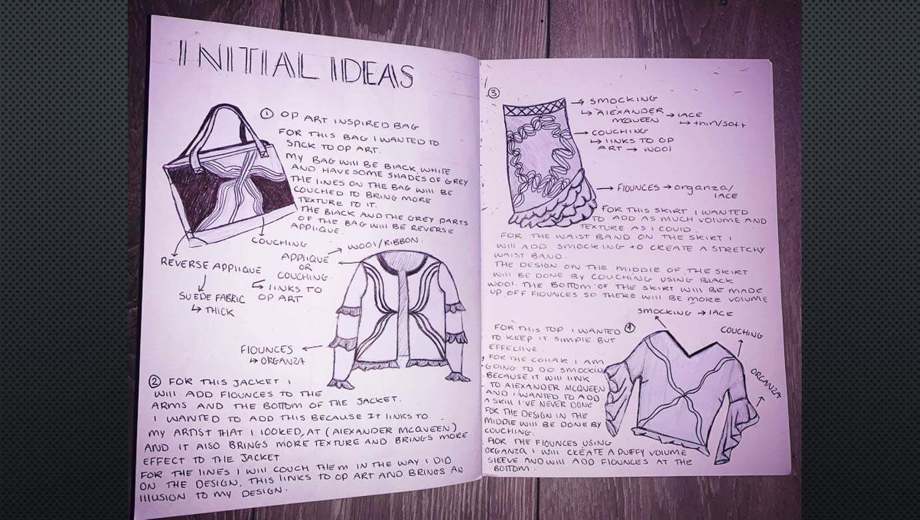 INITIAL IDEAS
① OP ART INSPIRED BAG
FOR THIS BAG I WANTED TO
STICK TO OP ART.
MY BAG WILL BE BLACK, WHITE
AND HAVE SOME SHADES OF GREY
THE LINES ON THE BAG WILL BE
COUCHED TO BRING MORE
TEXTURE TO IT.
THE BLACK AND THE GREY PARTS
OF THE BAG WILL BE REVERSE
APPLIQUE.
COUCHING
REVERSE APPLIQUE
SUEDE FABRIC
↳ THICK
WOOL/RIBBON.
APPLIQUE
OR
COUCHING
↳ LINKS TO
OP ART
FLOUNCES
↳ ORGANZA
② FOR THIS JACKET I
WILL ADD FLOUNCES TO THE
ARMS AND THE BOTTOM OF THE JACKET.
I WANTED TO ADD THIS BECAUSE IT LINKS TO
MY ARTIST THAT I LOOKED, AT (ALEXANDER MCQUEEN)
AND IT ALSO BRINGS MORE TEXTURE AND BRINGS MORE
EFFECT TO THE JACKET
FOR THE LINES I WILL COUCH THEM IN THE WAY I DID
ON THE DESIGN. THIS LINKS TO OP ART AND BRINGS AN
ILLUSION TO MY DESIGN.
③
→ SMOCKING
↳ ALEXANDER MCQUEEN → LACE
↳ thin/soft
→ COUCHING
↳ LINKS TO OP
ART → WOOL
→ FLOUNCES → organza/
LACE
FOR THIS SKIRT I WANTED
TO ADD AS MUCH VOLUME AND
TEXTURE AS I COULD.
FOR THE WAIST BAND ON THE SKIRT I
WILL ADD SMOCKING TO CREATE A STRETCHY
WAIST BAND.
THE DESIGN ON THE MIDDLE OF THE SKIRT
WILL BE DONE BY COUCHING USING BLACK
WOOL. THE BOTTOM OF THE SKIRT WILL BE MADE
UP OFF FLOUNCES SO THERE WILL BE MORE VOLUME
SMOCKING → LACE
④
COUCHING
ORGANZA
FOR THIS TOP I WANTED
TO KEEP IT SIMPLE BUT
EFFECTIVE
FOR THE COLLAR I AM
GOING TO DO SMOCKING
BECAUSE IT WILL LINK
TO ALEXANDER MCQUEEN
AND I WANTED TO ADD
A SKILL I'VE NEVER DONE
FOR THE DESIGN IN THE
MIDDLE WILL BE DONE BY
COUCHING.
FOR THE FLOUNCES USING
ORGANZA I WILL CREATE A PUFFY VOLUME
SLEEVE AND WILL ADD FLOUNCES AT THE
BOTTOM.